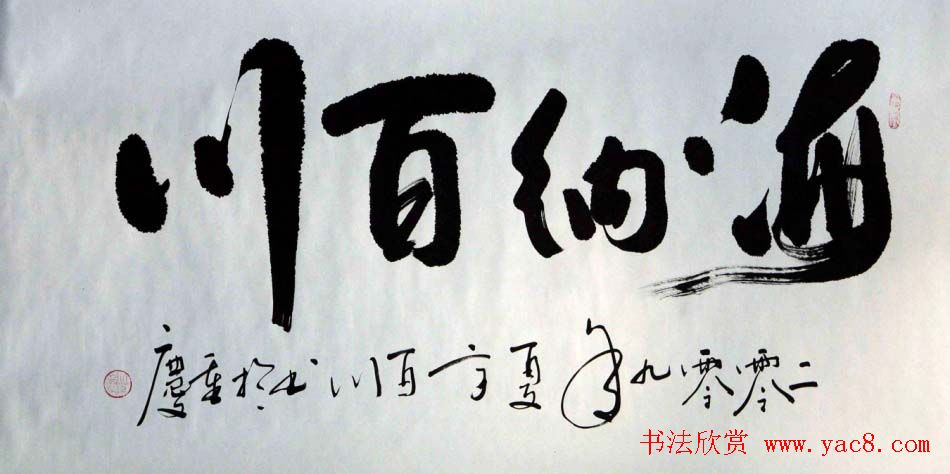 海纳百川
二零零九年夏方百川书于重慶
书法欣赏 www.yac8.com